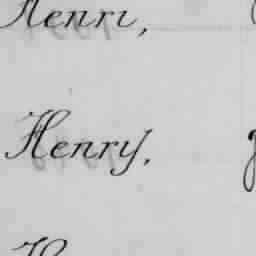 Henri,
Henry,